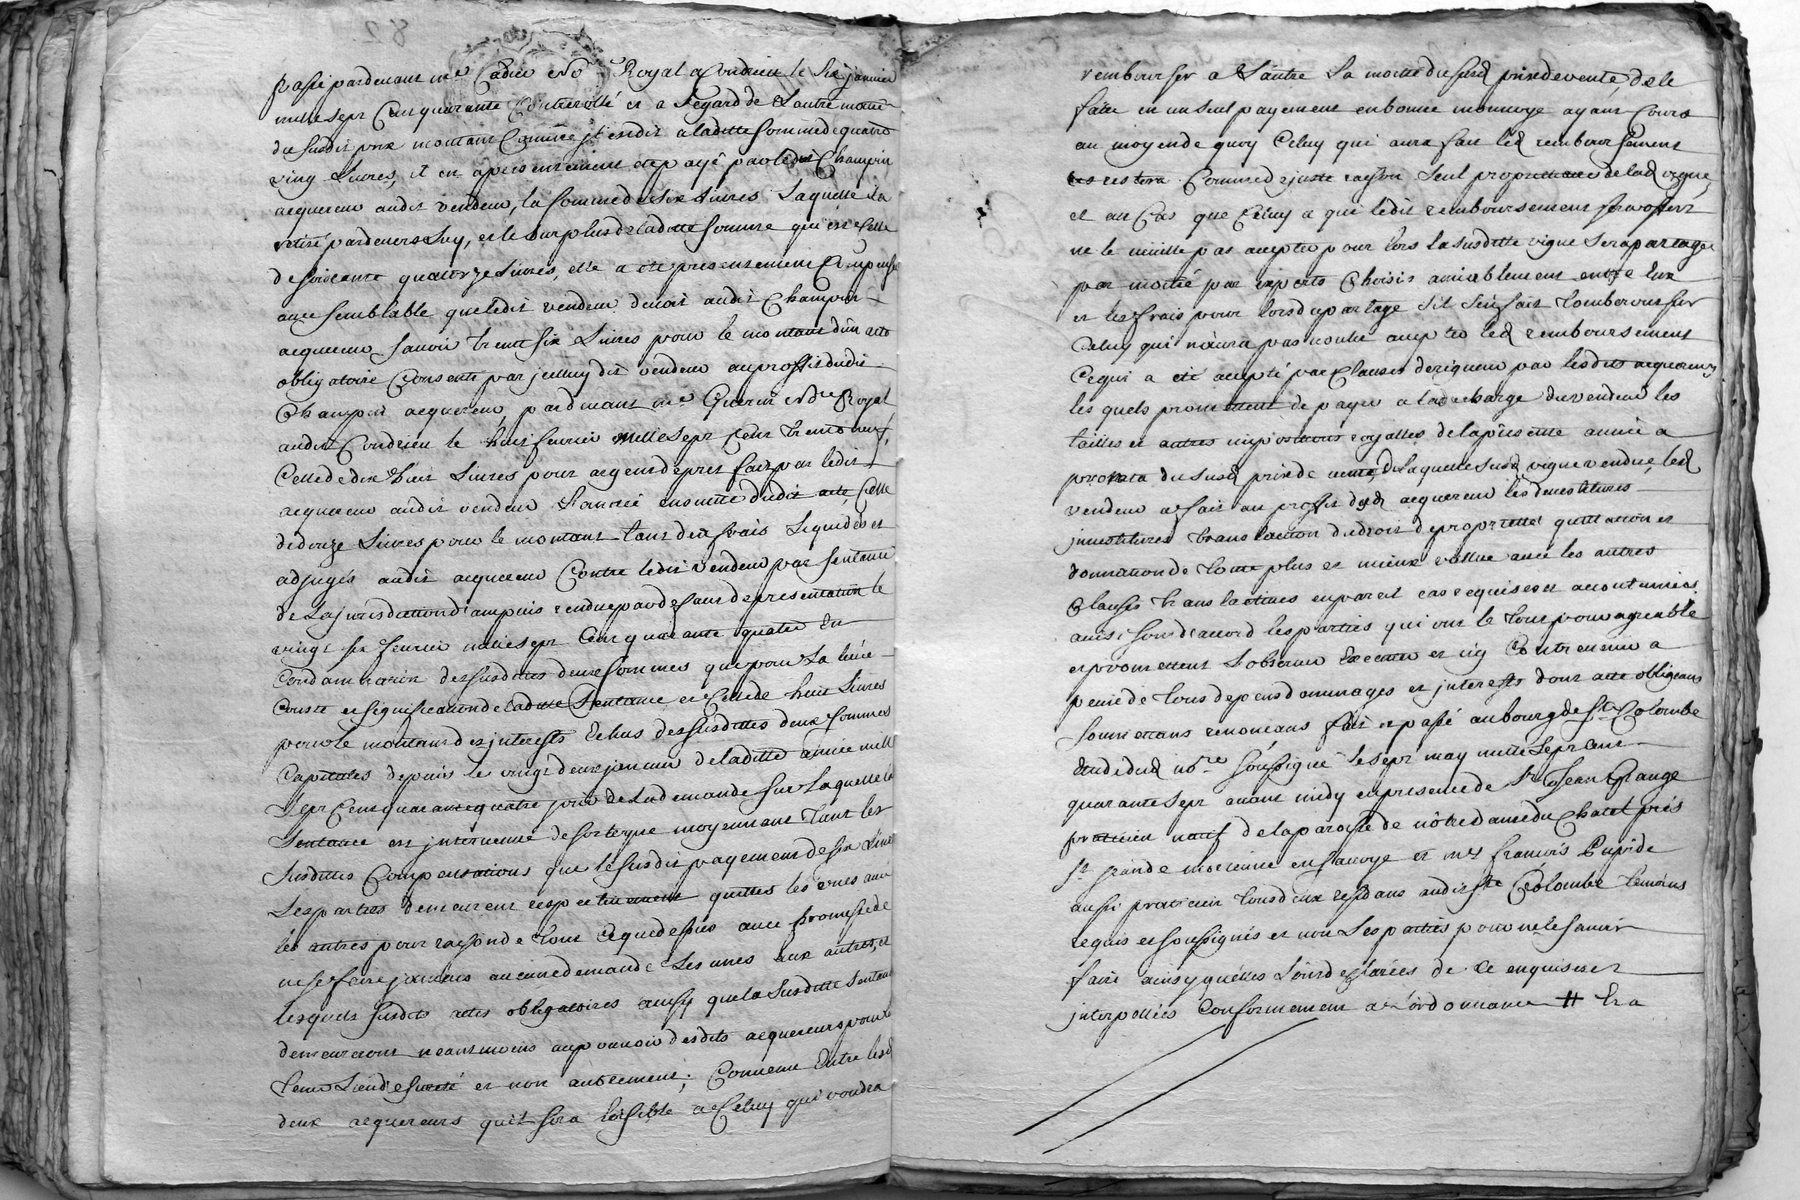 passé pardevant me Cadier no Royal a Condrieu le six janvier
mille sept Cent quarante Controollé et a l'egard de l'autre moitié
du susdit prix montant Comme jl est dit a laditte somme de quatre
vingt Livres, il en a presentement eté payé par ledit Champin
acquereur audit vendeur, la somme de six Livres Laquelle il a
retiré pardevers Luy, et le surplus de laditte somme qui est celle
de soixante quatorze Livres, elle a eté presentement Compensé
avec semblable que ledit vendeur devoit audit Champin
acquereur, savoir trente six Livres pour le montant d'un acte
obligatoire Consenti par jcelluy dit vendeur au proffit dudit
Champin acquereur, pardevant me Guerin no.re Royal
audit Condrieu le huit fevrier mille sept Cent trente neuf,
Celle de dix huit Livres pour argent de prest fait par ledit
acquereur audit vendeur L'année ensuitte dudit acte, Celle
de douze Livres pour le montant tant des frais Liquidés et
adjugés audit acquereur Contre ledit vendeur par sentence
de La jurisdiction d'ampuis rendue par deffaut de presentation le
vingt six fevrier mille sept Cent quarante quatre En
Condamnation des susdittes deux sommes que pour La levée
Coust et signification de laditte Sentence et Celle de huit Livres
pour le montant des jnterests Echus des susdittes deux sommes
Capitales depuis le vingt deux janvier de laditte année mille
Sept Cent quarante quatre jour de La demande sur Laquelle la
Sentence est jntervenue de sorte que moyennant tant les
susdittes Compensations que le susdit payement de six Livres
Les parties demeurent respectivement quittes les unes aux
les autres pour raison de tout Ce que dessus avec promesse de
ne se faire jamais aucune demande Les unes aux autres, et
lesquels susdits actes obligatoires aussy que la susditte sentence
demeureront neantmoins au pouvoir desdits acquereurs pour
Leur Lieu de sureté et non autrement; Convenu Entre lesd
deux acquereurs qu'il sera loisible a Celuy qui voudra
rembourser a L'autre La moitié du susd prix de vente, de le
faire en un seul payement en bonne monnoye ayant Cours
au moyen de quoy Celuy qui aura fait led remboursement
restera Comme de juste raison seul proprietaire de lad vigne,
et au Cas que Celuy a qui ledit remboursement sera offert
ne le veuille pas accepter pour lors la susditte vigne sera partagée
par moitié par experts Choisis amiablement entre Eux
et les frais pour lors du partage s'il s'en fait tomberont sur
Celuy qui n'aura pas voulu accepter led remboursement
Ce qui a eté accepté par Clause de rigueur par lesdits acquereurs
lesquels promettent de payer a la decharge du vendeur les
tailles et autres impositions royalles de la presente année a
prorata du susd prix de vente, de laquelle susd vigne vendue, led
vendeur a fait au proffit desd acquereurs les devestitures
jnvestitures translation du droit de proprieté quittation et
donnation de toute plus et mieux vallue avec les autres
Clauses translatives en pareil cas requises et accoutumées.
ainsi sont d'accord les parties qui ont le tout pour agreable
et promettent L'observer Executer et n'y Contrevenir a
peine de tous depens dommages et jnterests dont acte obligeans
soumettans renonceans fait et passé au bourg de Ste Colombe
Etude dud no.re soussigné le sept may mille Sept Cent
quarante sept avant midy en presence de Sr Jean Grange
praticien natif de la paroisse de nôtre dame du Chatel prés
St jean de morienne en savoye et me francois Cupide
aussi praticien tous deux residans audit Ste Colombe temoins
requis et soussignés et non Les parties pour ne le savoir
faire ainsy qu'elles L'ont declarées de ce enquises et
jnterpellées Conformement a L'ordonnance # En a